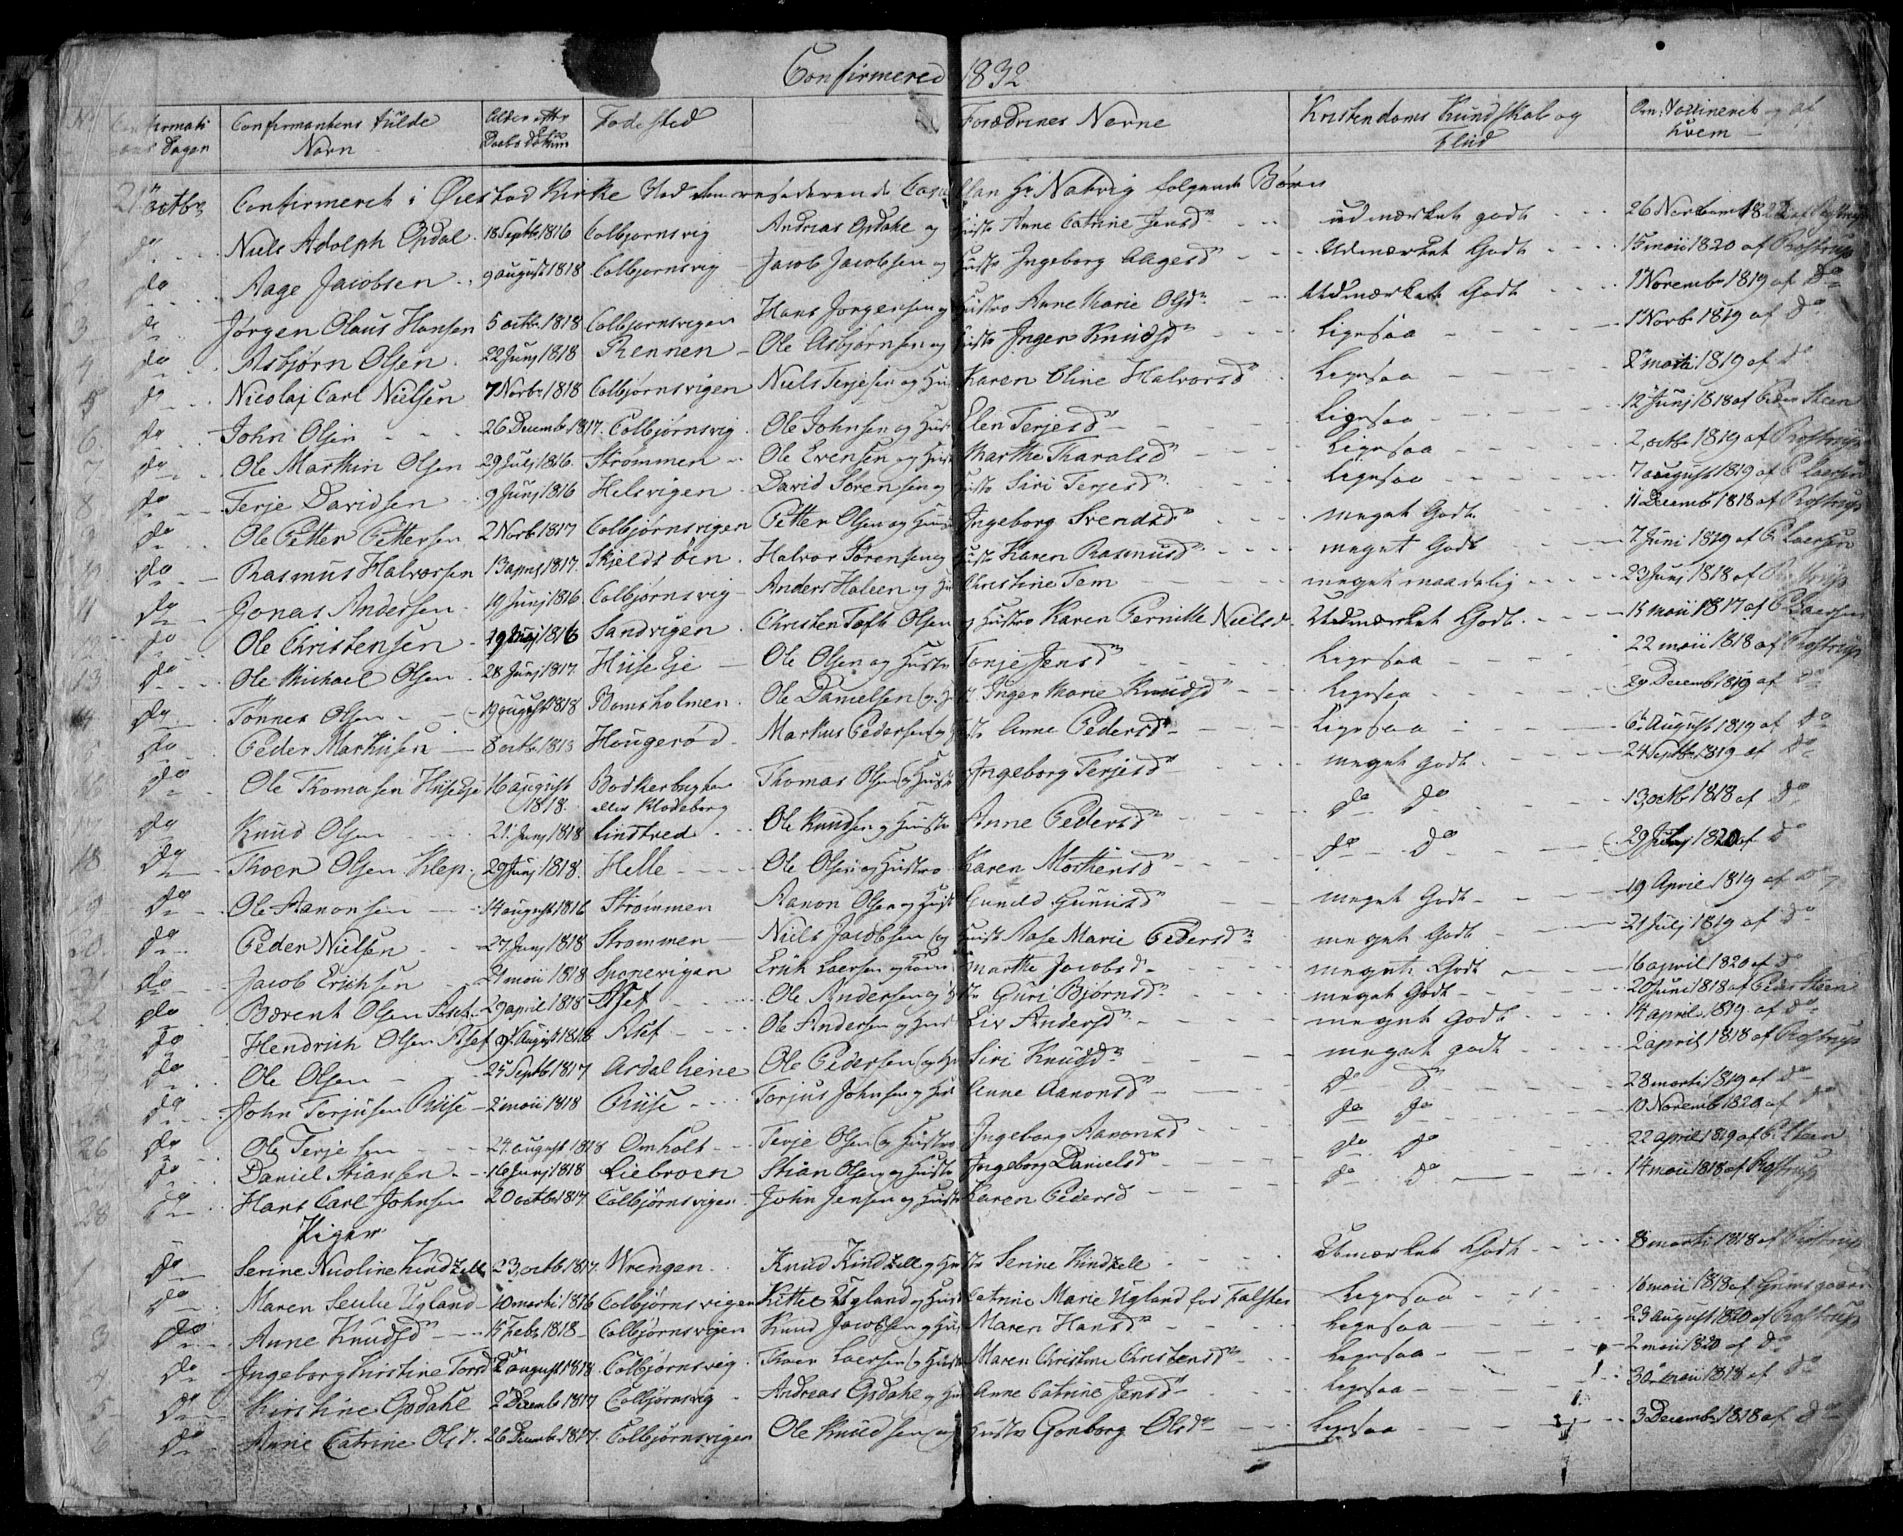 Confirmered 1832
No Confirmations Dagen Confirmantens fulde Navn Alder efter Daabsdatum Fødested Forældrenes Navne Kristendoms Kundskab og Flid Om Vaccineret og af hvem
21 octbr Confirmeret i Øiestad Kirke Ved den residerende Hr Natvig følgende Børn
do Niels Adolph Opdal 18 Septb 1816 Colbjornsvig Andreas Opdahl og Hust Anne Catrine Jensd udmærket godt 26 Novemb af Rostrup
2 do Aage Jacobsen 9 august 1818 Colbjornsvig Jacob Jacobsen og Hust Ingeborg Aagesd Udmærket Godt 15 maii 1820 af Rostrup
3 do Jørgen Olaus Hansen 5 octb 1818 Colbjornsvigen Hans Jorgensen og Hustro Anne Marie Olsd Udmærket Godt 1 Novemb 1819 af Do
4 do Asbjørn Olsen 22 Junj 1818 Rennen Ole Asbjørnsen og Hust Inger Knudsd Ligesaa 1 Novb 1819 af do
5 do Nicolaj Carl Nielsen 7 Novb 1818 Colbjørnsvigen Niels Terjesen og Hust Karen Oline Halvorsd Ligesaa 2 1819 af do
6 do John Olsen 26 Decemb 1817 Colbjørnsvig Ole Johnsen og Hust Elen Terjesd Ligesaa 12 Junj 1818 af Peder Steen
7 do Ole Marthin Olsen 29 Julj 1816 Strømmen Ole Evensen og Hust Marthe Tharalsd Ligesaa 2 octb 1819 af Rostrup
8 do Terje Davidsen 9 Junj 1816 Helsvigen David Sørensen og Hust Siri Terjesd Ligesaa 7 august 1819 af P Laersen
9 do Ole Petter Pettersen 2 Novb 1817 Colbjørnsvigen Petter Olsen og Hust Ingeborg Svendsd meget Godt 11 Decemb 1818 af Rostrup
10 do Rasmus Halvorsen 13 april 1817 Skjeldsøen Halvor Sørensen og Hust Karen Rasmusd meget Godt 7 Juni 1819 af P Laersen
11 do Jonas Andersen 19 Junj 1816 Colbjørnsvig Anders Haleen og Hu Christine Tem meget maadelig 23 Junj 1818 af Rostrup
12 do Ole Christensen 1816 Sandvigen Christen Toft Olsen og Hustro Karen Pernille Nielsd Udmærket Godt 15 maii 1817 af P Laersen
13 do Ole Michael Olsen 28 Junj 1817 Huse Eje Ole Olsen og Hustr Tonje Jensd Ligesaa 22 maii 1818 af Rostrup
14 do Tønnes Olsen 19 august 1818 Bomsholmen Ole Danielsen og H Inger Marie Knudsd Ligesaa 29 Decemb 1819 af do
15 do Peder Markusen 8 octb 1818 Hougerød Markus Pedersen og Hust Anne Pedersd Ligesaa 6 August 1819 af do
16 do Ole Thomasen Husedje 16 august 1818 Bodkerbugten eller Klodeberg Thomas Olsen og Hust Ingeborg Terjesd meget Godt 24 Septb 1819 af do
17 do Knud Olsen 21 Junj 1818 Lindtved Ole Knudsen og Hustro Anne Pedersd do do 13 octb 1818 af do
18 do Thoer Olsen Klep 29 Junj 1818 Helle Ole Olsen og Hustro Karen Morthensd do do 29 1820 af do
19 do Ole Aanonsen 14 august 1816 Strømmen Aanon Olsen og Hust Gunild Gunnisd meget Godt 19 April 1819 af do
20 do Peder Nielsen 27 Junj 1818 Strømmen Niels Jacobsen og Hust Aase Marie Pedersd meget Godt 21 Julj 1819 af do
21 do Jacob Erichsen 21 maii 1818 Spanevigen Erich Laersen og Marthe Jacobsd meget Godt 16 april 1820 af do
22 do Bærent Olsen 29 april 1818 Asef Ole Andersen og Hust Guri Bjørnsd meget Godt 20 Juni 1818 af Peder Steen
23 do Hendrich Olsen Asef August 1818 Asef Ole Andersen og Hust Liv Andersd meget Godt 14 april 1819 af do
24 do Ole Olsen 25 Septb 1817 Ardal Leine Ole Pedersen og Hu Siri Knudsd meget godt 2 april 1818 af Rostrup
25 do John Terjusen Riise 2 maii 1818 Riise Torjus Johnsen og Hus Anne Aanonsd do do 28 marti 1819 af do
26 do Ole Terjesen 24 august 1818 Omholt Terje Olsen og Hustro Ingeborg Aanonsd do do 10 Novemb 1820 af do
27 do Daniel Stiansen 16 Junj 1818 Liebroen Stian Olsen og Hustr Ingeborg Danielsd do do 22 april 1819 af P Steen
28 do Hans Carl Johnsen 20 octb 1817 Colbjørnsvigen John Jensen og Hust Karen Pedersd do do 14 maii 1818 af Rostrup
Piger
1 do Serine Nicoline Kindzell 23 octb 1817 Wrengen Knud Kindzell og Hust Serine Kindzell Udmærket Godt 8 marti 1818 af Rostrup
2 do Maren Ugland 10 marti 1816 Colbjørnsvigen Kittel Ugland og Hust Catrine Marie Ugland før Falsten Ligesaa 16 maii 1818 af Grimsgaard
3 do Anne Knudsd 15 Feb 1818 Colbjørnsvigen Knud Jacobsen og Hus Maren Hansd Ligesaa 23 august 1820 af Rostrup
4 do Ingeborg Kirstine Tord 2 august 1818 Colbjørnsvig Thoer Laersen og Hust Maren Christine Christensd Ligesaa 2 maii 1820 af do
5 do Kirstine Opdahl 2 Decemb 1817 Colbjørnsvig Andreas Opdahl og Hu Anne Catrine Jensd Ligesaa 30 maii 1818 af do
6 do Anne Catrine Olsd 26 Decemb 1817 Colbjørnsvigen Ole Knudsen og Hustro Gonborg Olsd Ligesaa 3 Decemb 1818 af do